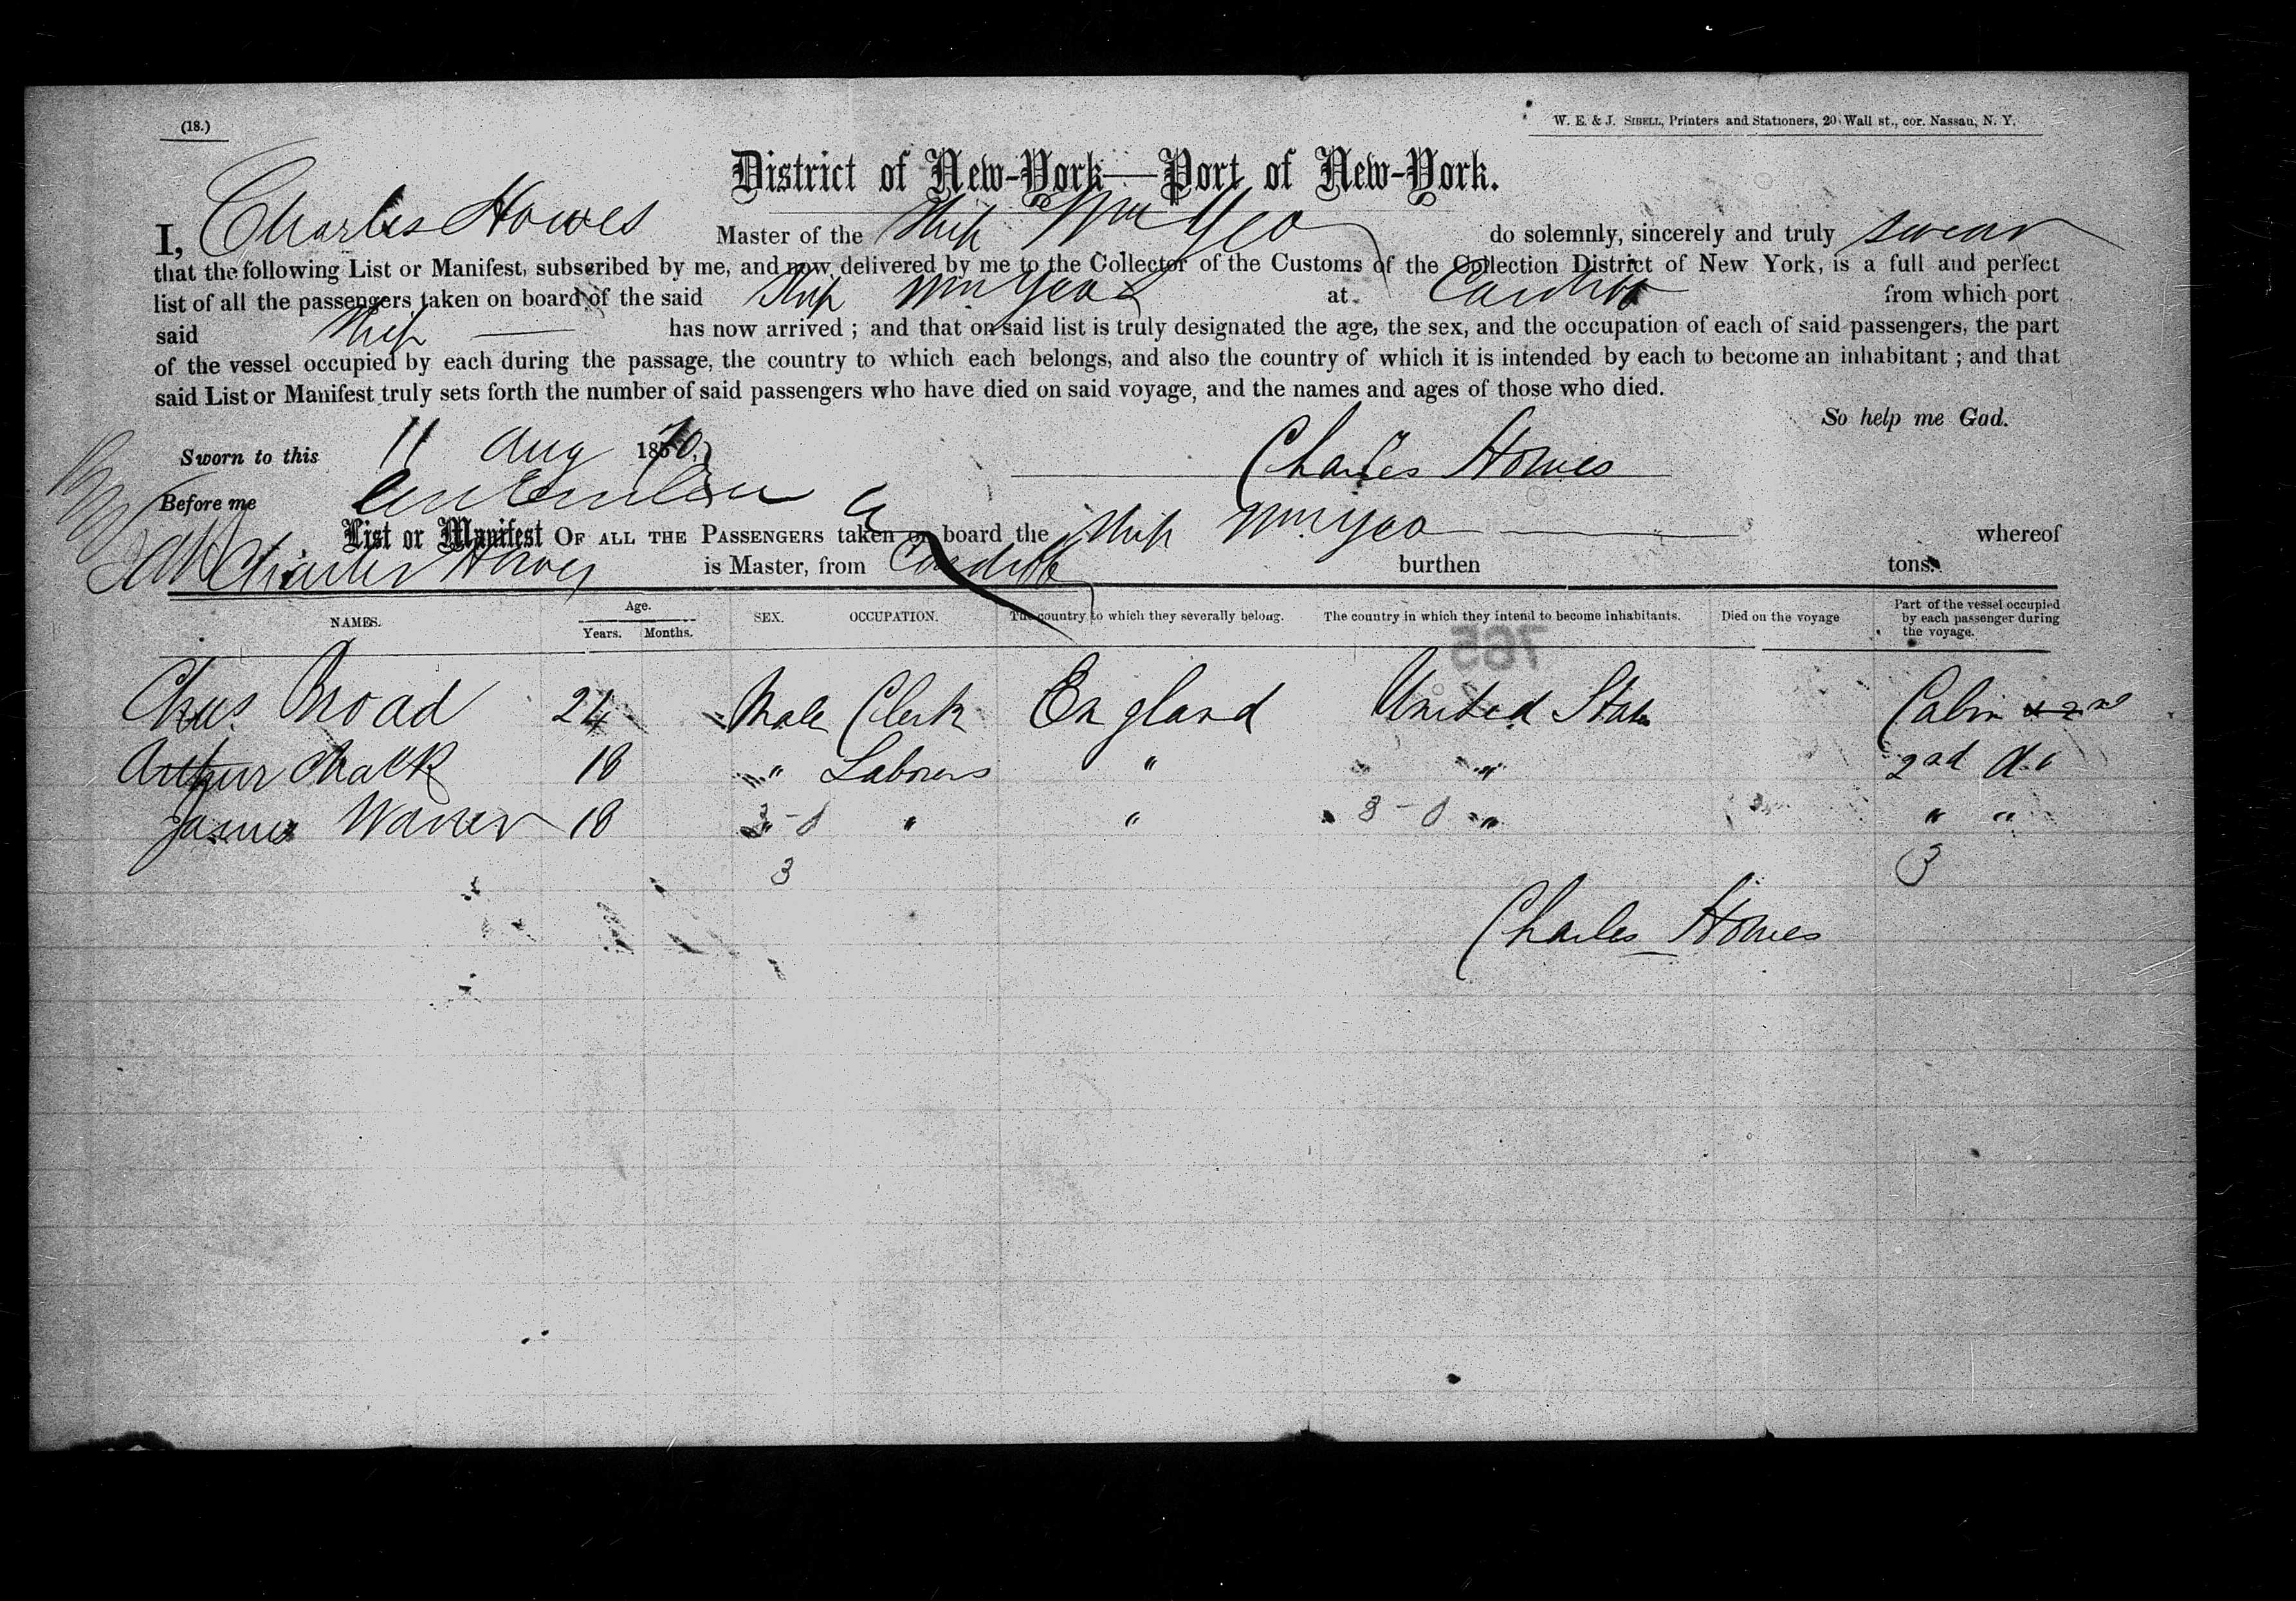 (18.)
W. E. & J. SIBELL, Printers and Stationers, 20 Wall st., cor. Nassau, N. Y.
District of New-York—Port of New-York.
I, Charles Howes Master of the Ship Wm Yeo do solemnly, sincerely and truly swear
that the following List or Manifest, subscribed by me, and now delivered by me to the Collector of the Customs of the Collection District of New York, is a full and perfect
list of all the passengers taken on board of the said Ship Wm Yeo at Cardiff from which port
said Ship has now arrived ; and that on said list is truly designated the age, the sex, and the occupation of each of said passengers, the part
of the vessel occupied by each during the passage, the country to which each belongs, and also the country of which it is intended by each to become an inhabitant ; and that
said List or Manifest truly sets forth the number of said passengers who have died on said voyage, and the names and ages of those who died.
So help me God.
Sworn to this 11 Aug 1870, Charles Howes
Before me
List or Manifest OF ALL THE PASSENGERS taken on board the Ship Wm Yeo whereof
Charles Howes is Master, from Cardiff burthen tons.
NAMES. Age. Years. Months. SEX. OCCUPATION. The country to which they severally belong. The country in which they intend to become inhabitants. Died on the voyage Part of the vessel occupied by each passenger during the voyage.
765
Chas. Broad 24 Male Clerk England United States Cabin
Arthur Chalk 18 " Laborers " " 2nd do
James Warren 18 " " " " " "
3 3
Charles Howes